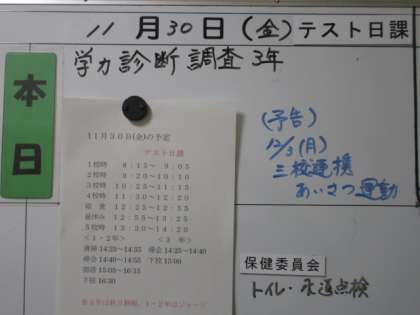 11月30日(金)テスト日課
本日
学力診断調査 3年
11月30日(金)の予定
テスト日課
1校時 8:15~ 9:05
2校時 9:20~10:10
3校時 10:25~11:15
4校時 11:30~12:20
給食 12:20~12:55
昼休み 12:55~13:25
5校時 13:30~14:20
<1・2年> <3年>
清掃 14:25~14:35 帰会 14:25~14:40
帰会 14:40~14:55 下校 15:00
部活 15:05~16:15
下校 16:30
(予告)
12/3(月)
三校連携
あいさつ運動
保健委員会
トイレ・水道点検